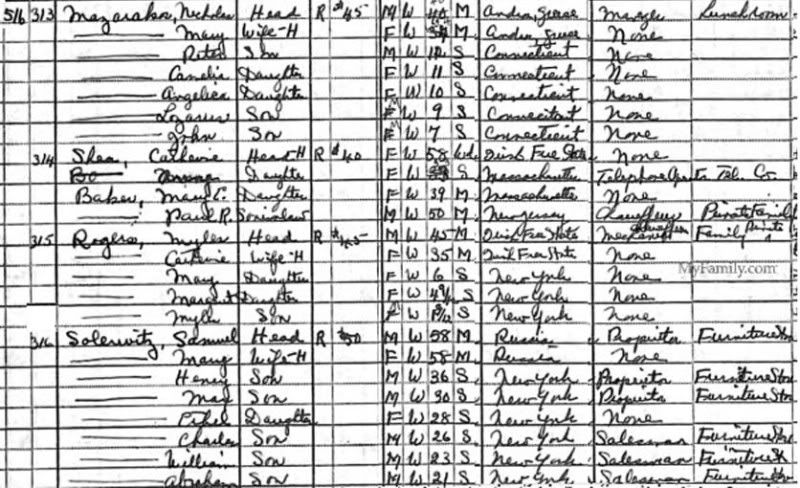 516 313 Nicholas Head R $45 M W M Andros, Greece Lunchroom
Mary Wife-H F W M Andros, Greece None
Peter Son M W 12 S Connecticut None
Camelia Daughter F W 11 S Connecticut None
Angelica Daughter F W 10 S Connecticut None
Son M W 9 S Connecticut None
John Son M W 7 S Connecticut None
314 Shea, Catherine Head-H R $40 F W 58 Wd. Irish Free State None
Daughter F W S Massachusetts Telephone Operator Tel. Co.
Baker, Mary E. Daughter F W 39 M Massachusetts None
Paul R. Soninlaw M W 50 M New Jersey Chauffeur Private Family
315 Rogers, Myles Head R M W 45 M Irish Free State Mechanic Chauffeur Private Family
Catherine Wife-H F W 35 M Irish Free State None
May Daughter F W 6 S New York None
Margaret Daughter F W S New York None
Myles Son M W S New York None
MyFamily.com
316 Solerwitz, Samuel Head R $50 M W 58 M Russia Proprietor Furniture Store
Mary Wife-H F W 58 M Russia None
Henry Son M W 36 S New York Proprietor Furniture Store
Max Son M W 30 S New York Proprietor Furniture Store
Ethel Daughter F W 28 S New York None
Charles Son M W 26 S New York Salesman Furniture Store
William Son M W 23 S New York Salesman Furniture St
Abraham Son M W 21 S New York Salesman Furniture Store